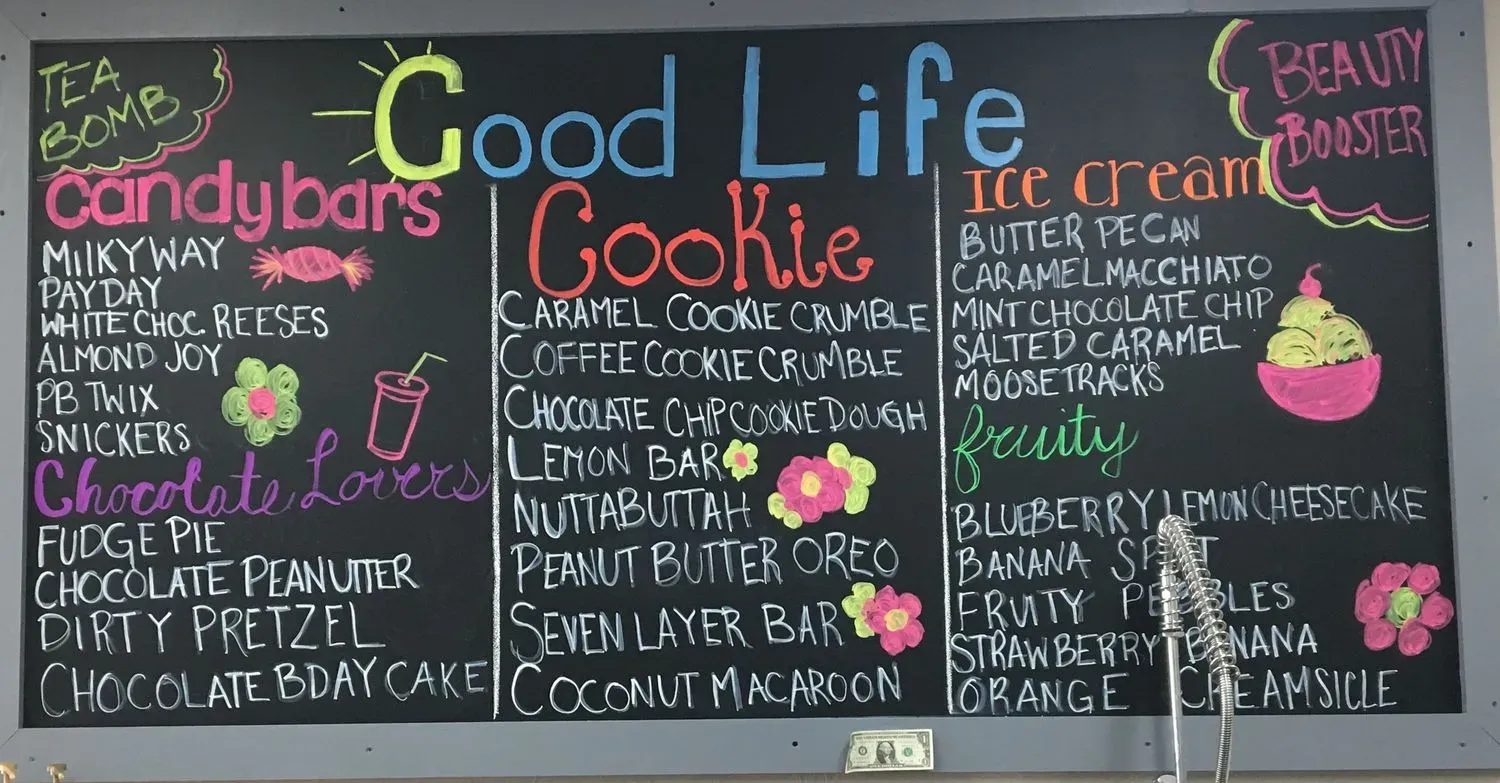 TEA
BOMB
Good Life
BEAUTY
BOOSTER
candy bars
MILKY WAY
PAYDAY
WHITE CHOC. REESES
ALMOND JOY
PB TWIX
SNICKERS
Chocolate Lovers
FUDGE PIE
CHOCOLATE PEANUTTER
DIRTY PRETZEL
CHOCOLATE BDAY CAKE
Cookie
CARAMEL COOKIE CRUMBLE
COFFEE COOKIE CRUMBLE
CHOCOLATE CHIP COOKIE DOUGH
LEMON BAR
NUTTABUTTAH
PEANUT BUTTER OREO
SEVEN LAYER BAR
COCONUT MACAROON
Ice cream
BUTTER PECAN
CARAMEL MACCHIATO
MINT CHOCOLATE CHIP
SALTED CARAMEL
MOOSETRACKS
fruity
BLUEBERRY LEMON CHEESECAKE
BANANA SPLIT
FRUITY PEBBLES
STRAWBERRY BANANA
ORANGE CREAMSICLE